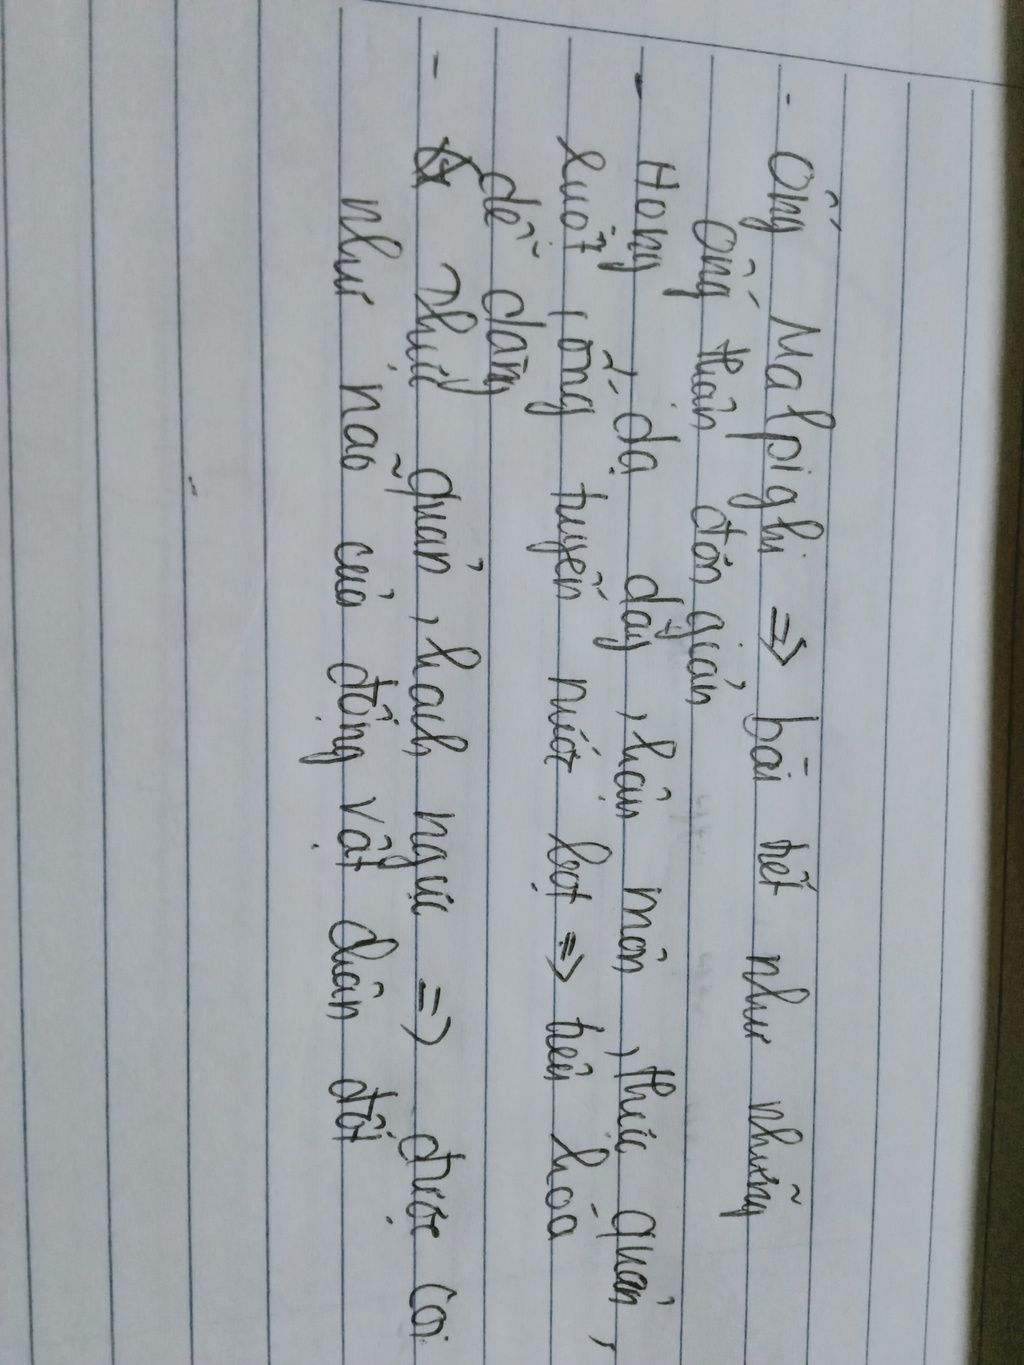 - Ống Malpighi => bài tiết như những
ống thận đơn giản
- Họng, dạ dày, hậu môn, thực quản,
ruột, ống tuyến nước bọt => tiêu hóa
dễ dàng
- Thực quản, hạch ngực => được coi
như não của động vật chân đốt